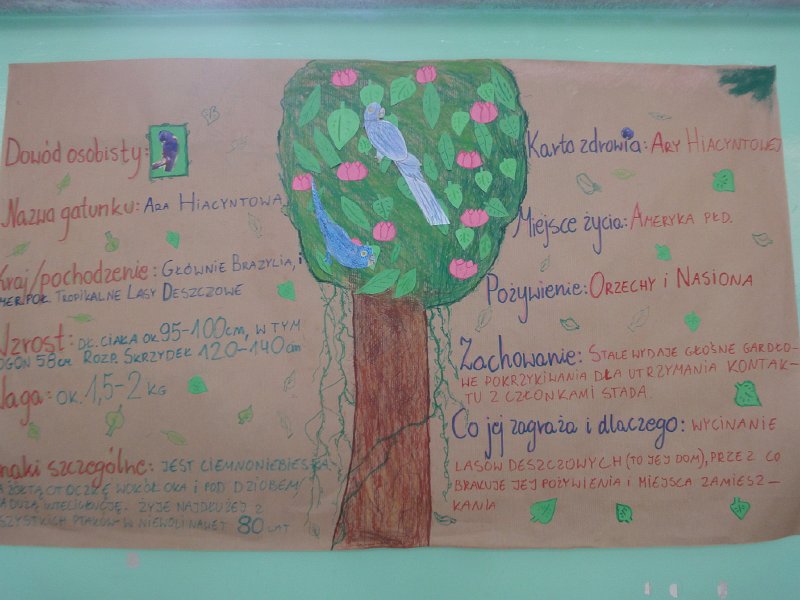 Dowód osobisty:
Nazwa gatunku: ARA HIACYNTOWA
Kraj/pochodzenie: GŁÓWNIE BRAZYLIA, i
AMER. POŁ. TROPIKALNE LASY DESZCZOWE
Wzrost: DŁ. CIAŁA OK. 95-100cm, W TYM
OGON 58cm ROZP. SKRZYDEŁ 120-140cm
Waga: OK. 1,5-2 KG
znaki szczególne: JEST CIEMNONIEBIESKA
MA ŻÓŁTĄ OTOCZKĘ WOKÓŁ OKA I POD DZIOBEM
MA DUŻĄ INTELIGENCJĘ. ŻYJE NAJDŁUŻEJ Z
WSZYSTKICH PTAKÓW W NIEWOLI NAWET 80 LAT
Karta zdrowia: ARY HIACYNTOWEJ
Miejsce życia: AMERYKA PŁD.
Pożywienie: ORZECHY i NASIONA
Zachowanie: STALE WYDAJE GŁOŚNE GARDŁO-
WE POKRZYKIWANIA DLA UTRZYMANIA KONTAK-
TU Z CZŁONKAMI STADA.
Co jej zagraża i dlaczego: WYCINANIE
LASÓW DESZCZOWYCH (TO JEJ DOM), PRZEZ CO
BRAKUJE JEJ POŻYWIENIA I MIEJSCA ZAMIESZ-
KANIA